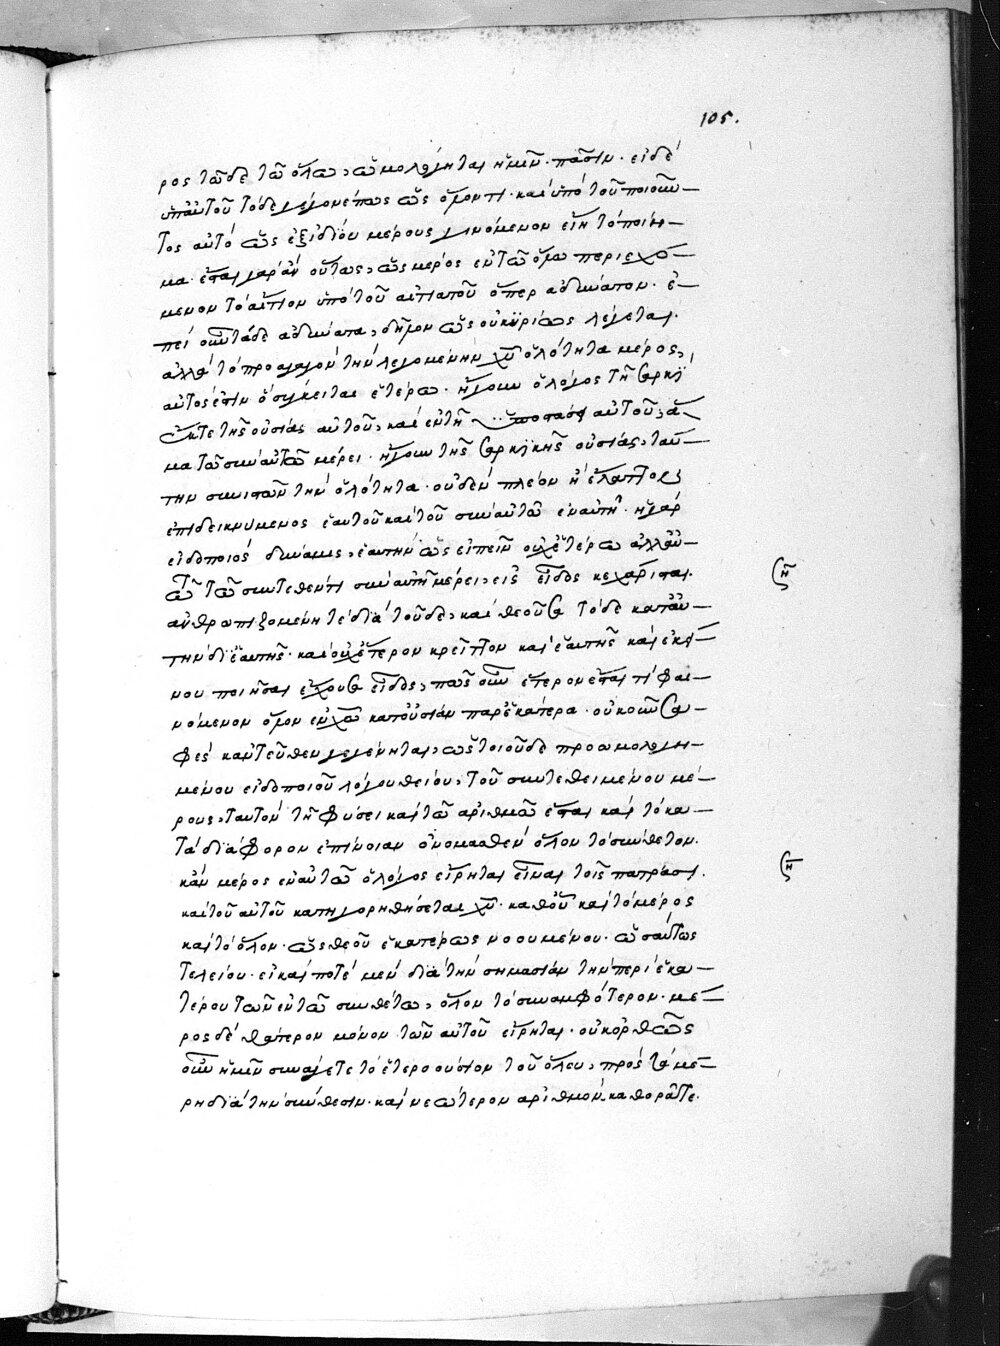 105.
ρος τῶδε τῶ ὅλω, ὡμολόγηται ἡμῖν πᾶσιν. εἰ δέ
ὑπ' αὐτοῦ τόδε γέγονέ πως ὡς ὅμοντι. καὶ ὑπὸ τοῦ ποιοῦν
τος αὐτό ὡς ἐξ ἰδίου μέρους γινόμενον εἴη τὸ ποίη
μα. ἔσται γὰρ ἂν οὕτως, ὡς μέρος ἐν τῶ ὅλω περιεχό
μενον τὸ αἴτιον ὑπὸ τοῦ αἰτιατοῦ ὅπερ ἀδύνατον. ἐ
πεὶ οὖν τάδε ἀδύνατα, δῆλον ὡς οὐ κυρίως λέγεται.
ἀλλὰ τὸ προαγαγὸν τὴν λεγομένην χυ ὁλότητα μέρος,
αὐτός ἐστιν ὃ σύγκειται ἑτέρω. ἤγουν ὁ λόγος τῆ σαρκὶ
ἔκ τε τῆς οὐσίας αὐτοῦ, καὶ ἐν τῆ ὑποστάσει αὐτοῦ, ἅ
μα τῶ σὺν αὐτῶ μέρει. ἤγουν τῆς σαρκικῆς οὐσίας, ταύ
την συνιστῶν τὴν ὁλότητα. οὐδὲν πλέον ἢ ἔλαττον
ἐπιδεικνύμενος ἑαυτοῦ καὶ τοῦ σὺν αὐτῶ ἐν αὐτῆ. ἡ γὰρ
εἰδοποιός δύναμις, ἑαυτὴν ὡς εἰπεῖν οὐχ ἑτέρω ἀλλ' αὐ
τῶ τῶ συντεθέντι σὺν αὐτῆ μέρει, εἰς εἶδος κεχάρισται.
ἀνθρωπιζομένη τε διὰ τοῦδε, καὶ θεοῦσα τόδε κατ' αὐ
τὴν δι' ἑαυτῆς. καὶ οὐχ ἕτερον κρεῖττον καὶ ἑαυτῆς καὶ ἐκεί
νου ποιῆσαι ἔχουσα εἶδος, πῶς οὖν ἕτερον ἔσται τί φαι
νόμενον ὅλον ἐν χω κατ' οὐσίαν παρ' ἑκάτερα. οὐκοῦν σα
φὲς κἀντεῦθεν γεγένηται, ὡς τοιοῦδε προωμολογη
μένου εἰδοποιοῦ λόγου θείου, τοῦ συντεθειμένου μέ
ρους, ταυτόν τῆ φύσει καὶ τῶ ἀριθμῶ ἔσται καὶ τὸ κα
τὰ διάφορον ἐπίνοιαν ὀνομασθὲν ὅλον τὸ σύνθετον.
κἂν μέρος ἐν αὐτῶ ὁ λόγος εἴρηται εἶναι τοῖς πατράσι.
καὶ τοῦ αὐτοῦ κατηγορηθήσεται χυ. καθ' οὗ καὶ τὸ μέρος
καὶ τὸ ὅλον. ὡς θεοῦ ἑκατέρως νοουμένου. ὡσαύτως
τελείου. εἰ καί ποτε μὲν διὰ τὴν σημασίαν τὴν περὶ ἑκα
τέρου τῶν ἐν τῶ συνθέτω, ὅλον τὸ συναμφότερον. μέ
ρος δὲ θάτερον μόνον τῶν αὐτοῦ εἴρηται. οὐκ ὀρθῶς
οὖν ἡμῖν συνάγετε τὸ ἑτεροούσιον τοῦ ὅλου, πρὸς τὰ μέ
ρη διὰ τὴν σύνθεσιν. καὶ νεώτερον ἀριθμὸν καθορᾶτε.